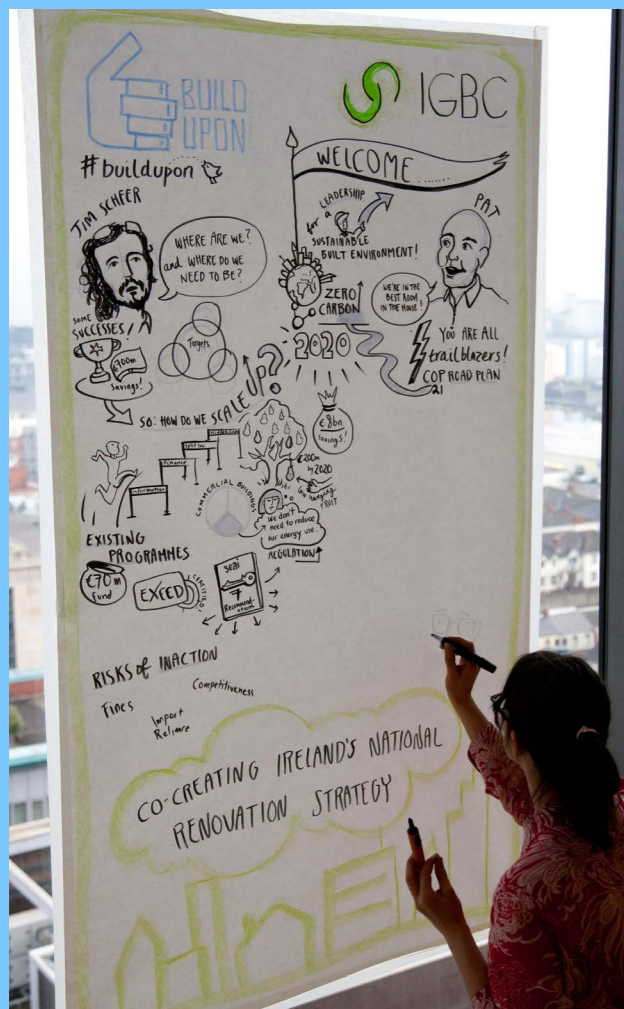 BUILD
UPON
IGBC
#buildupon
WELCOME
JIM SCHEER
WHERE ARE WE?
and WHERE DO WE
NEED TO BE?
for a
LEADERSHIP
SUSTAINABLE
BUILT ENVIRONMENT!
PAT
WE'RE IN THE
BEST ROOM
IN THE HOUSE!
ZERO
CARBON
2020
YOU ARE ALL
trailblazers!
COP ROAD PLAN
21
SOME
SUCCESSES!
€700m
Savings!
Targets
SO: HOW DO WE SCALE UP?
€8bn
savings!
€200m
by 2020
low hanging
FRUIT
Information
Finance
COMMERCIAL BUILDINGS
We don't
need to reduce
our energy use
REGULATION
EXISTING
PROGRAMMES
€70m
Fund
EXEED
CERTIFIED
seai
7
RISKS of INACTION
Fines
Competitiveness
Import
Reliance
CO-CREATING IRELAND'S NATIONAL
RENOVATION STRATEGY